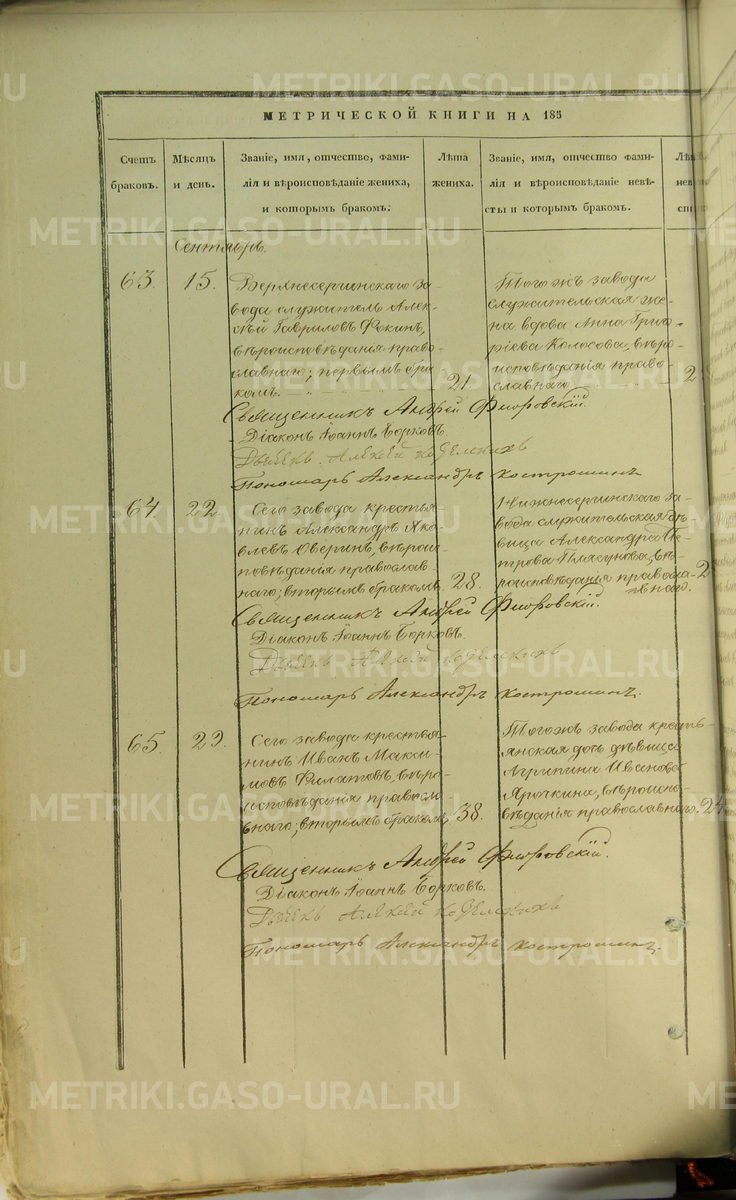 МЕТРИЧЕСКОЙ КНИГИ НА 185
Счетъ
браковъ.
Мѣсяцъ
и день.
Званіе, имя, отчество, фами-
лія и вѣроисповѣданіе жениха,
и которымъ бракомъ.
Лѣта
жениха.
Званіе, имя, отчество фами-
лія и вѣроисповѣданіе невѣ-
сты и которымъ бракомъ.
Сентябрь.
63.
15.
Верхнесергинскаго за-
вода служитель Алек-
сѣй Гавриловъ Фокинъ,
вѣроисповѣданія право-
славнаго; первымъ бра-
комъ.
21.
Тогожъ завода
служительская же-
на вдова Анна Григо-
рьева Колосова, вѣро-
исповѣданія право-
славнаго
Священникъ Андрей Флоровскій.
Діаконъ Іоаннъ Борковъ.
Алексей
Пономарь Александръ Костромин
64.
22.
Сего завода крестья-
нинъ Александръ Яко-
влевъ Оверинъ, вѣроис-
повѣданія православ-
наго; вторымъ бракомъ.
28.
Нижнесергинскаго за-
вода служительская дѣ-
вица Александра Пе-
трова Плясунова, вѣ-
роисповѣданія правосла-
внаго.
Священникъ Андрей Флоровскій.
Діаконъ Іоаннъ Борковъ.
Алексей
Пономарь Александръ Костромин
65.
29.
Сего завода крестья-
нинъ Иванъ Макси-
мовъ Филатовъ, вѣро-
исповѣданія правосла-
внаго; вторымъ бракомъ.
38.
Тогожъ завода кресть-
янская дочь дѣвица
Агрипина Иванова
Ярочкина, вѣроиспо-
вѣданія православнаго.
24.
Священникъ Андрей Флоровскій.
Діаконъ Іоаннъ Борковъ.
Алексей
Пономарь Александръ Костромин
METRIKI.GASO-URAL.RU
METRIKI.GASO-URAL.RU
METRIKI.GASO-URAL.RU
METRIKI.GASO-URAL.RU
METRIKI.GASO-URAL.RU
METRIKI.GASO-URAL.RU
METRIKI.GASO-URAL.RU
METRIKI.GASO-URAL.RU